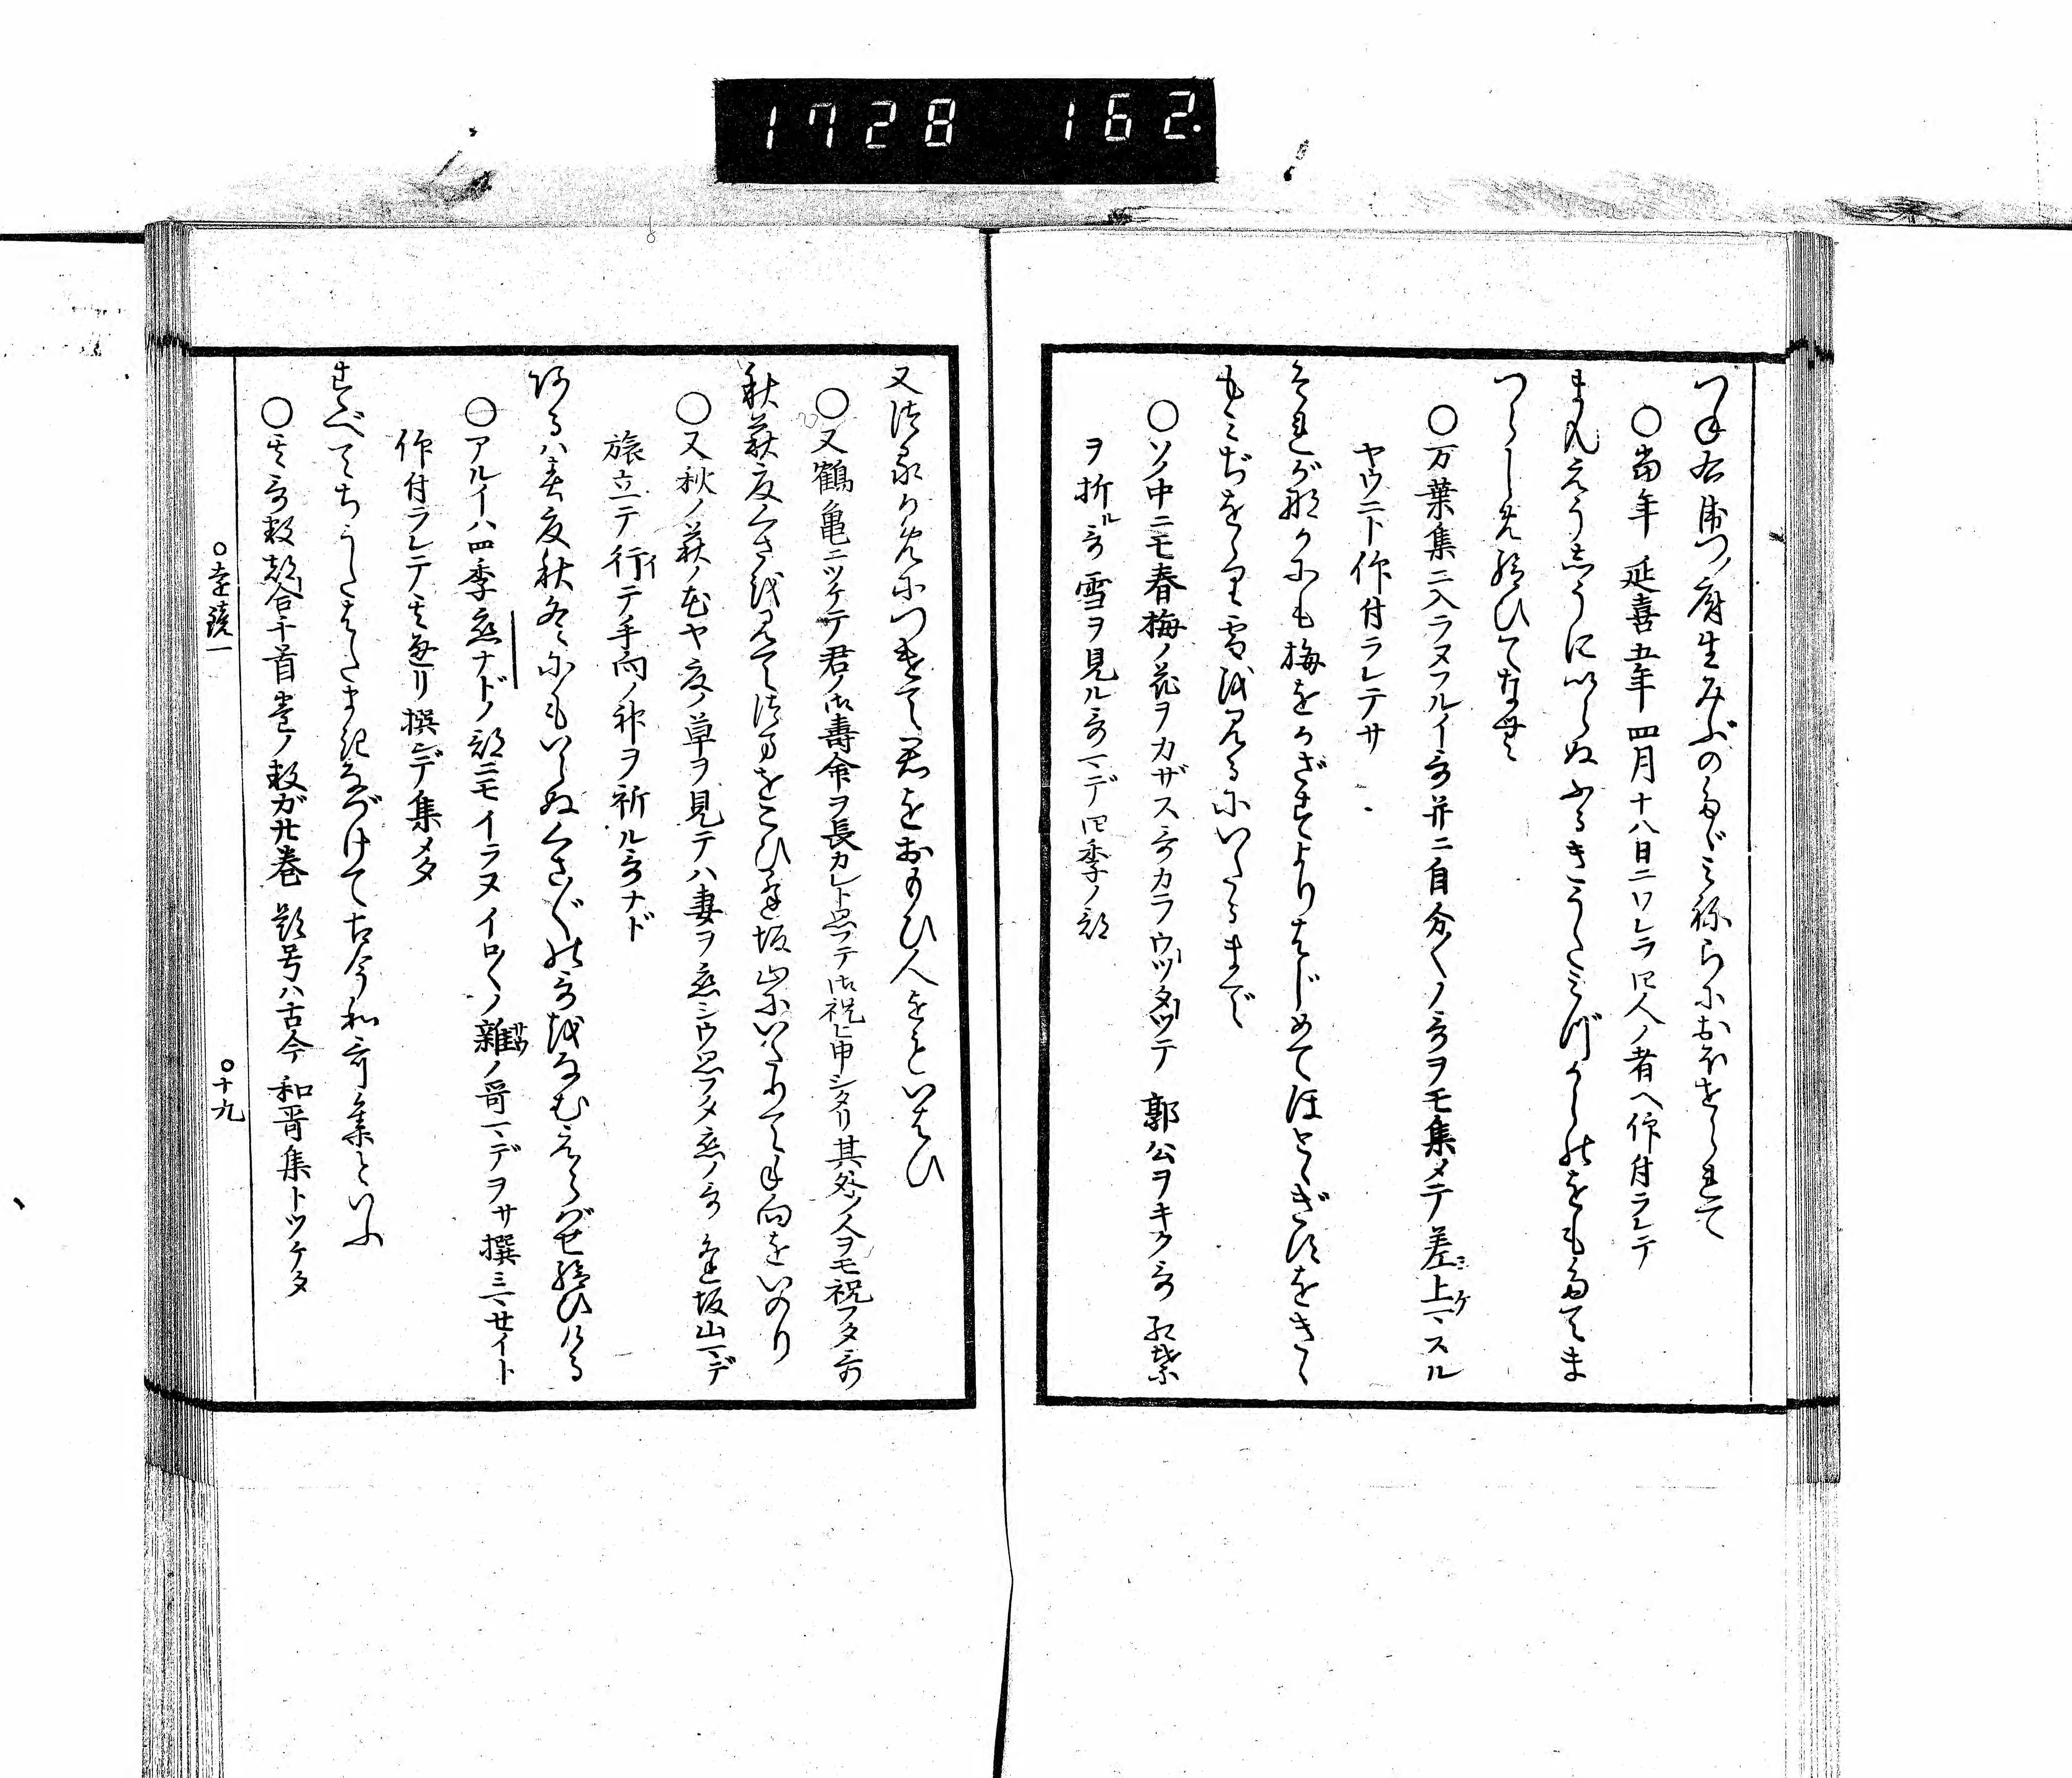 1728 162.
つね右衛つノ府生みぶのたゞみねらにおほせられて
○當年 延喜五年 四月十八日ニワレラ四人ノ者ヘ仰付ラレテ
まんえうしうにいらぬふるきうたみづからのをもたてま
つらしめ給ひてなむ
○万葉集ニ入ラヌフルイ哥并ニ自分〱ノ哥ヲモ集メテ差上ミスル
ヤウニト仰付ラレテサ
それが那かにも梅をかざすよりはじめてほとゝぎすをきゝ
もみぢをゝり雪を見るにいたるまで
○ソノ中ニモ春梅ノ花ヲカザス哥カラウツタツテ 郭公ヲキク哥 紅葉
ヲ折ル哥 雪ヲ見ル哥マデ四季ノ部
又つるかめにつけて君をおもひ人をもいはひ
○又鶴亀ニツケテ君ノ御壽命ヲ長カレト思フテ御祝ヒ申シタリ其外ノ人ヲモ祝フタ哥
秋萩夏くさを見てつまをこひ逢坂山にいたりて手向をいのり
○又秋ノ萩ノ花ヤ夏ノ草ヲ見テハ妻ヲ恋シウ思フタ恋ノ哥 逢坂山マデ
旅立テ行テ手向ノ神ヲ祈ル哥ナド
あるハ春夏秋冬にもいらぬくさ〲の哥をなむえらばせ給ひける
○アルイハ四季恋ナドノ部ニモイラヌイロ〱ノ雑ノ哥マデヲサ撰ミマセイト
仰付ラレテノ其通リ撰ンデ集メタ
すべてちうたはたまきなづけて古今和哥集といふ
○其哥数都合千首巻ノ数ガ廿巻 題号ハ古今和哥集トツケタ
○遠鏡一
○十九